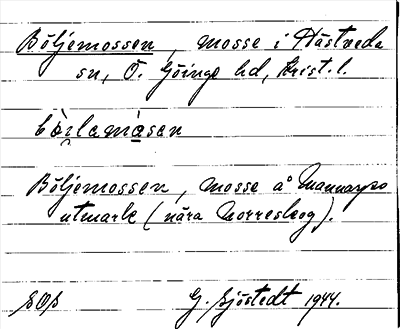 Böljemossen, mosse i Hästveda
sn, Ö. Göinge hd, Krist. l.
bø̀lemåsen
Böljemossen, mosse å Mannarps
utmark (nära Norreskog).
SOS G. Sjöstedt 1944.